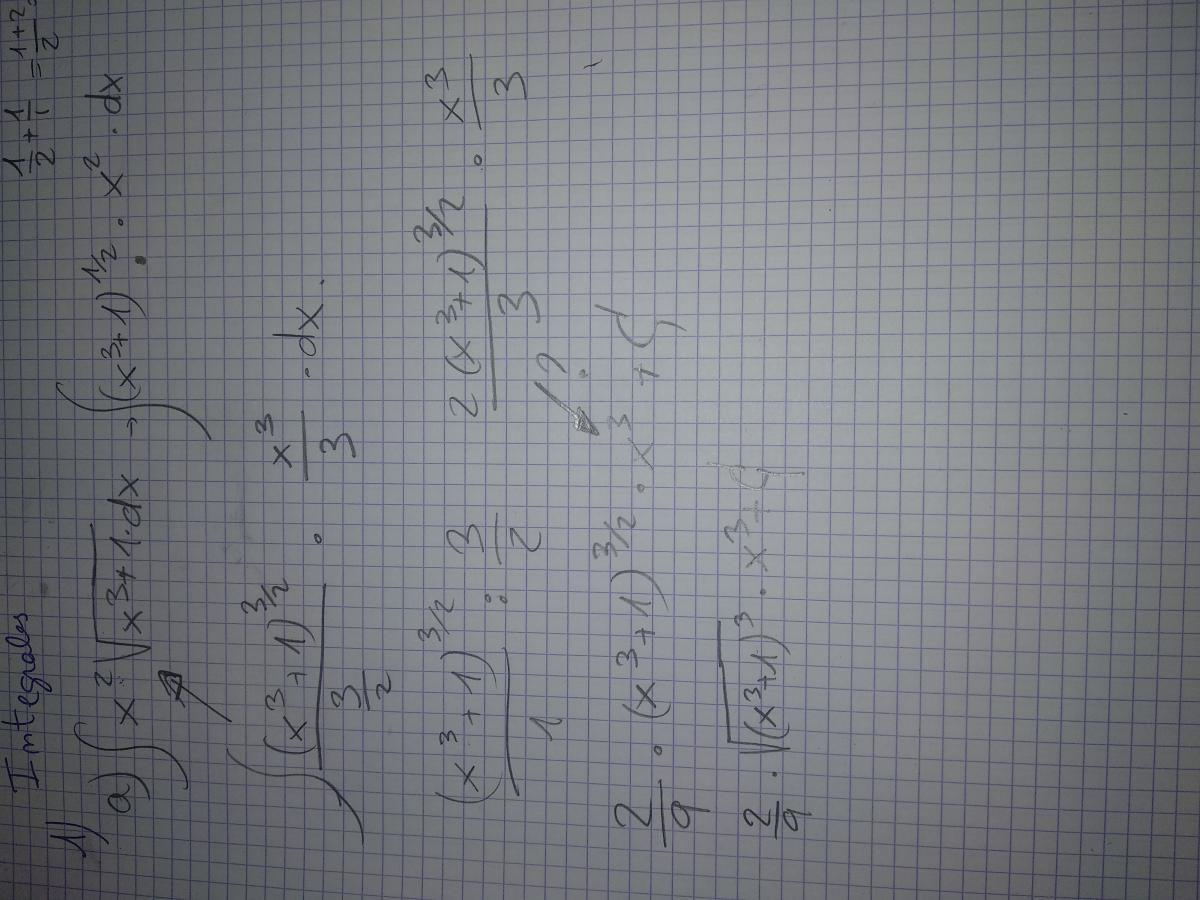 Integrales
1/2 + 1/1 = 1+2/2
1) a) ∫ x² √(x³+1) · dx → ∫ (x³+1)^(1/2) · x² · dx
∫ (x³+1)^(3/2) / (3/2) · x³/3 · dx.
(x³+1)^(3/2) / 1 : 3/2 2(x³+1)^(3/2) / 3 · x³/3
?
2/9 · (x³+1)^(3/2) · x³ + C
2/9 · √(x³+1)³ · x³ + C